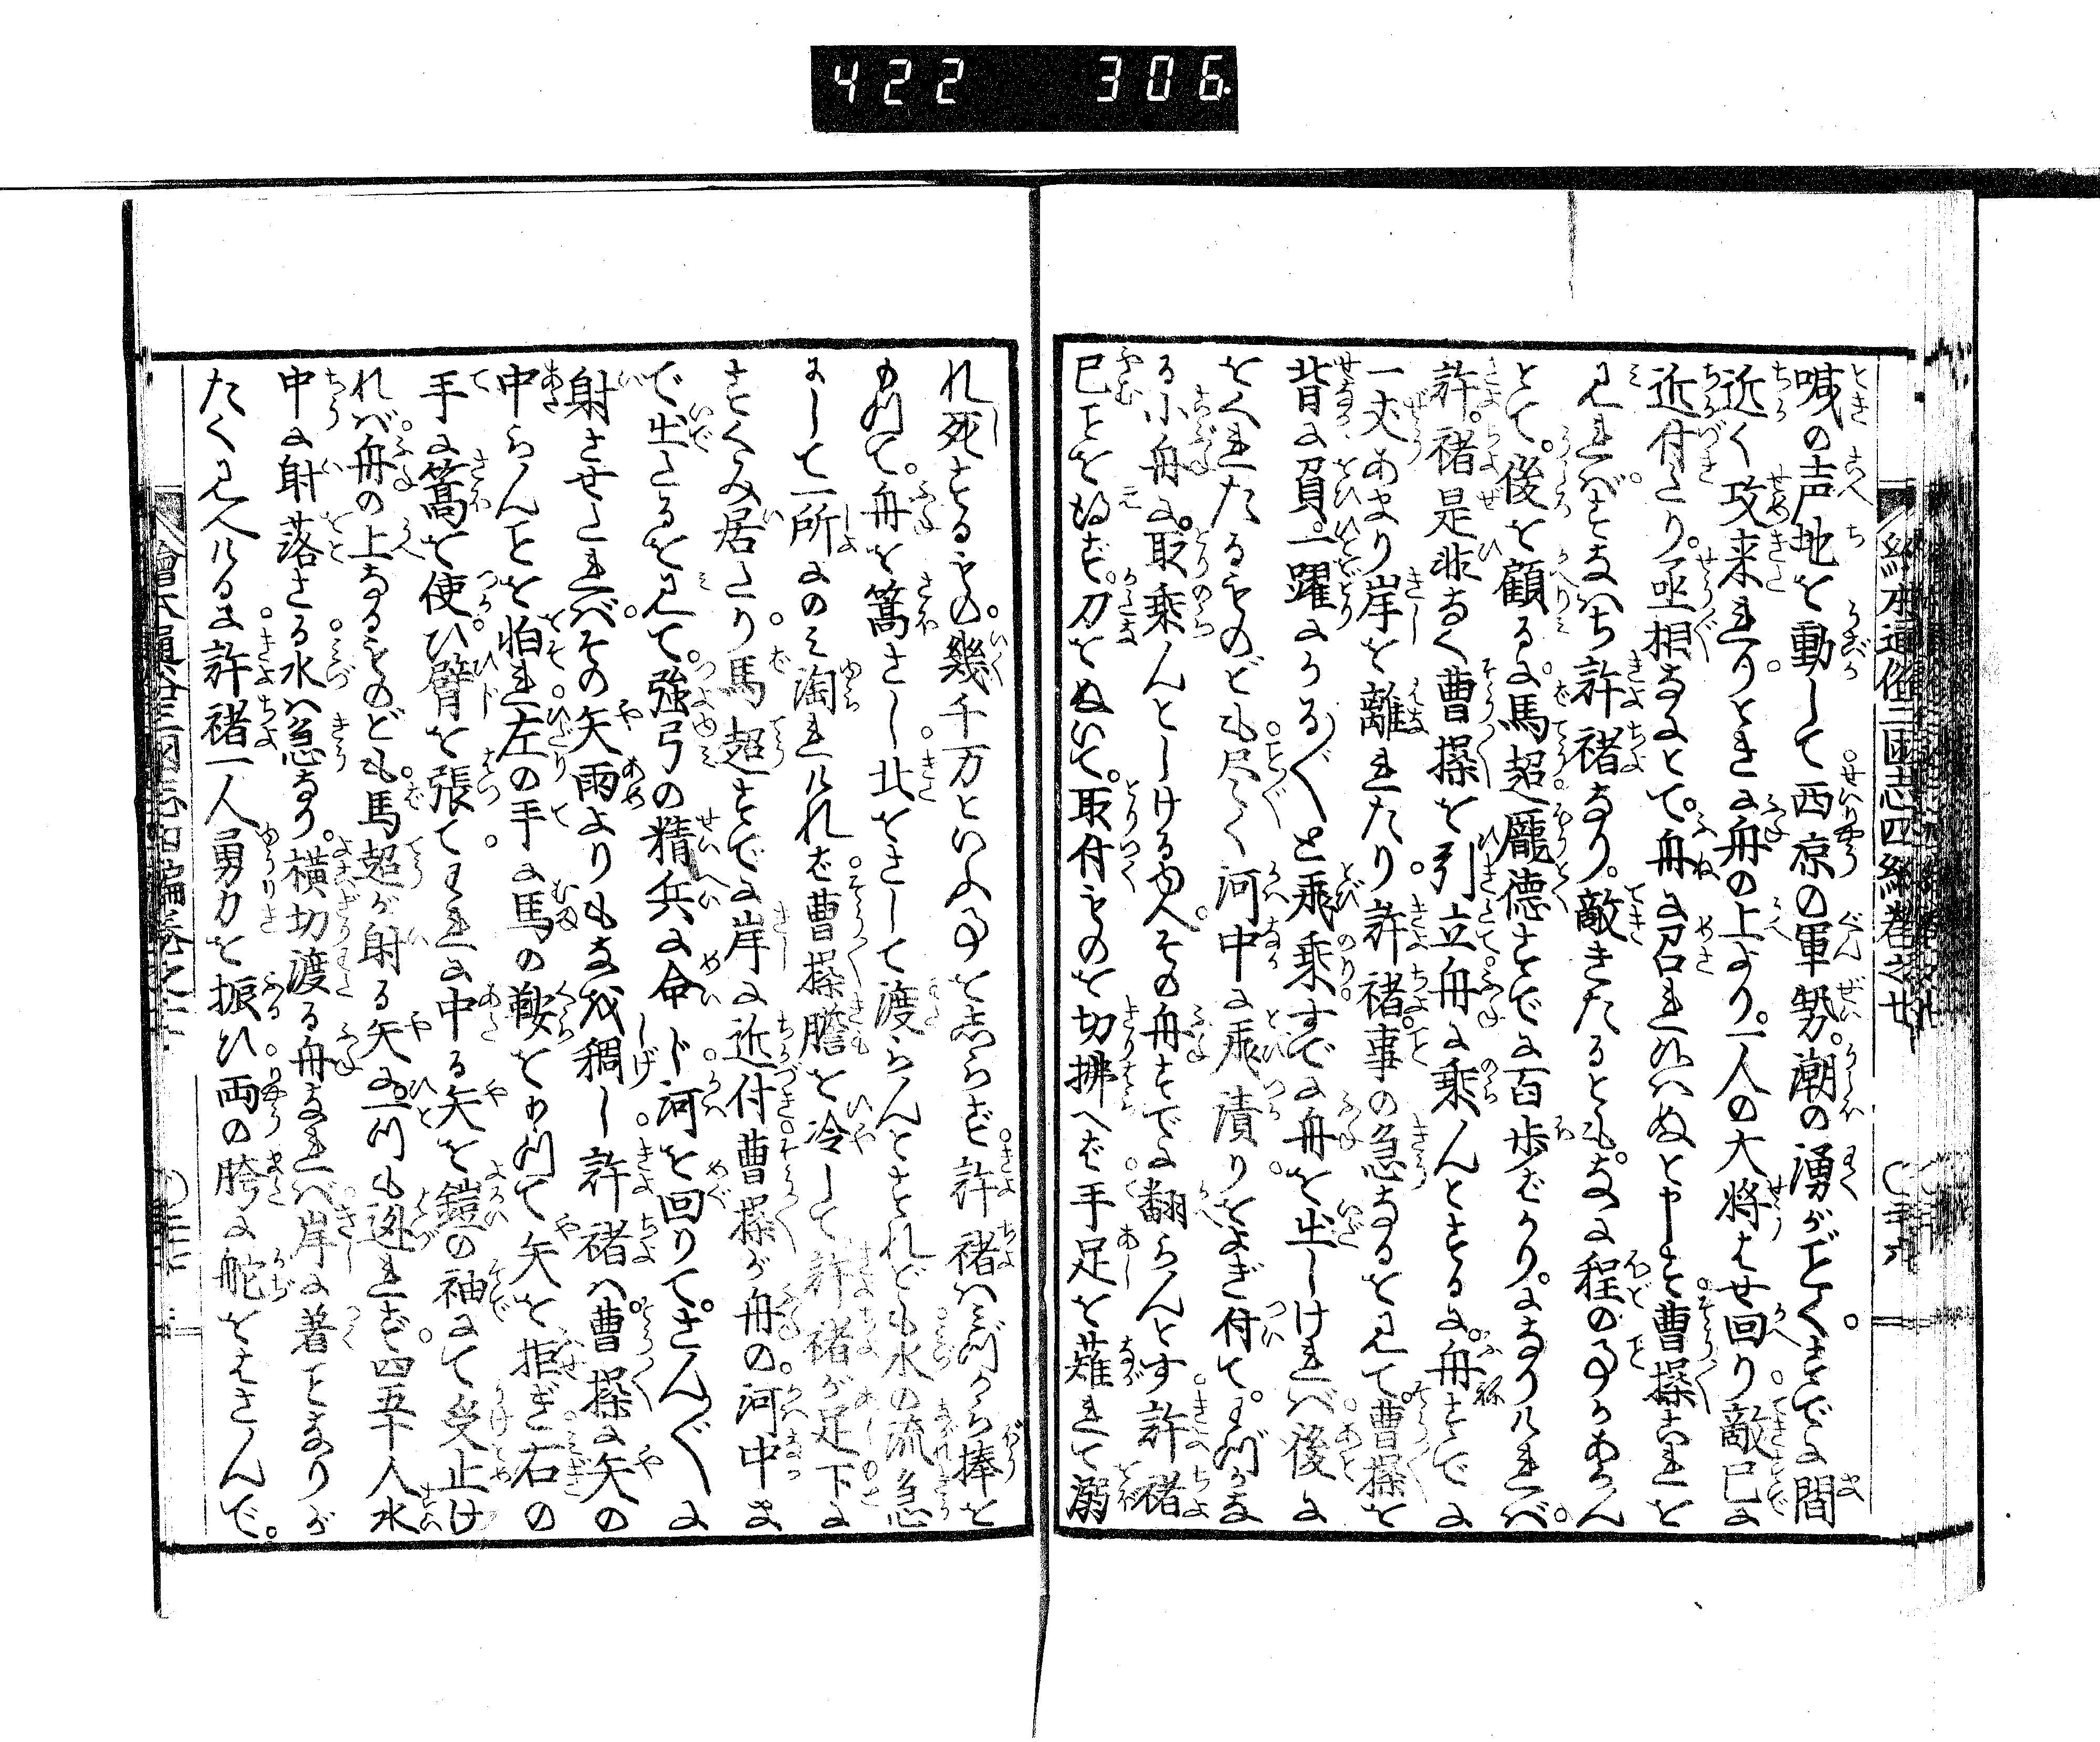 422 306
喊の声地を動して西涼の軍勢。潮の湧がごとくすでに間
近く攻来れりときに舟の上より。一人の大将はせ回り敵已に
近付たり。丞相なにとて。舟に召れ給はぬと申しを曹操これを
見ればすなはち許褚なり。敵きたるとも。なに程の事かあらん
とて。後を顧るに。馬超龐徳すでに百歩ばかり。になりければ。
許褚是非なく曹操を引立舟に乗んとするに。舟すでに
一丈あまり岸を離れたり許褚事の急なるを見て。曹操を
背に負。一躍にかる〴〵と飛乗すでに舟を出しければ後に
をくれたるものども尽く河中に飛漬りをよぎ付て。我がな
る小舟に。取乗んとしけるゆへ。その舟すでに翻らんとす許褚
已ことを得ず。刀をぬいて。取付ものを切拂へば手足を薙れて溺
れ死するもの。幾千万といふ事をしらず許褚はみづから棒を
もつて。舟を篙さし北をさして渡らんとすれども水の流急
にして一所にのみ淘れければ曹操膽を冷して許褚が足下に
すくみ居たり馬超すでに岸に近付曹操が舟の。河中ま
で出たるを見て。強弓の精兵に命じ河を回りて。さん〴〵に
射させたれば。その矢雨よりもなを稠し許褚は曹操に矢の
中らんことを怕れ左の手に馬の鞍をもつて矢を拒ぎ右の
手に篙を使ひ臂を張て我に中る矢を鎧の袖にて受止け
れば舟の上なるものども馬超が射る矢に。一つも迯れず四五十人水
中に射落さる水は急なり。横切渡る舟なれば岸に着ことなりが
たく見へけるに許褚一人勇力を振ひ両の胯に舵をはさんで。